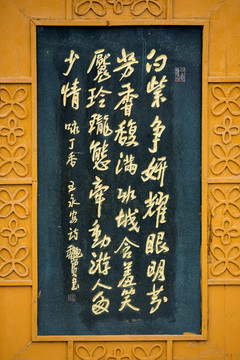 白紫争妍耀眼明芸
芳香馥满冰城含羞笑
靥玲珑态牵动游人多
少情 咏丁香 王永安诗